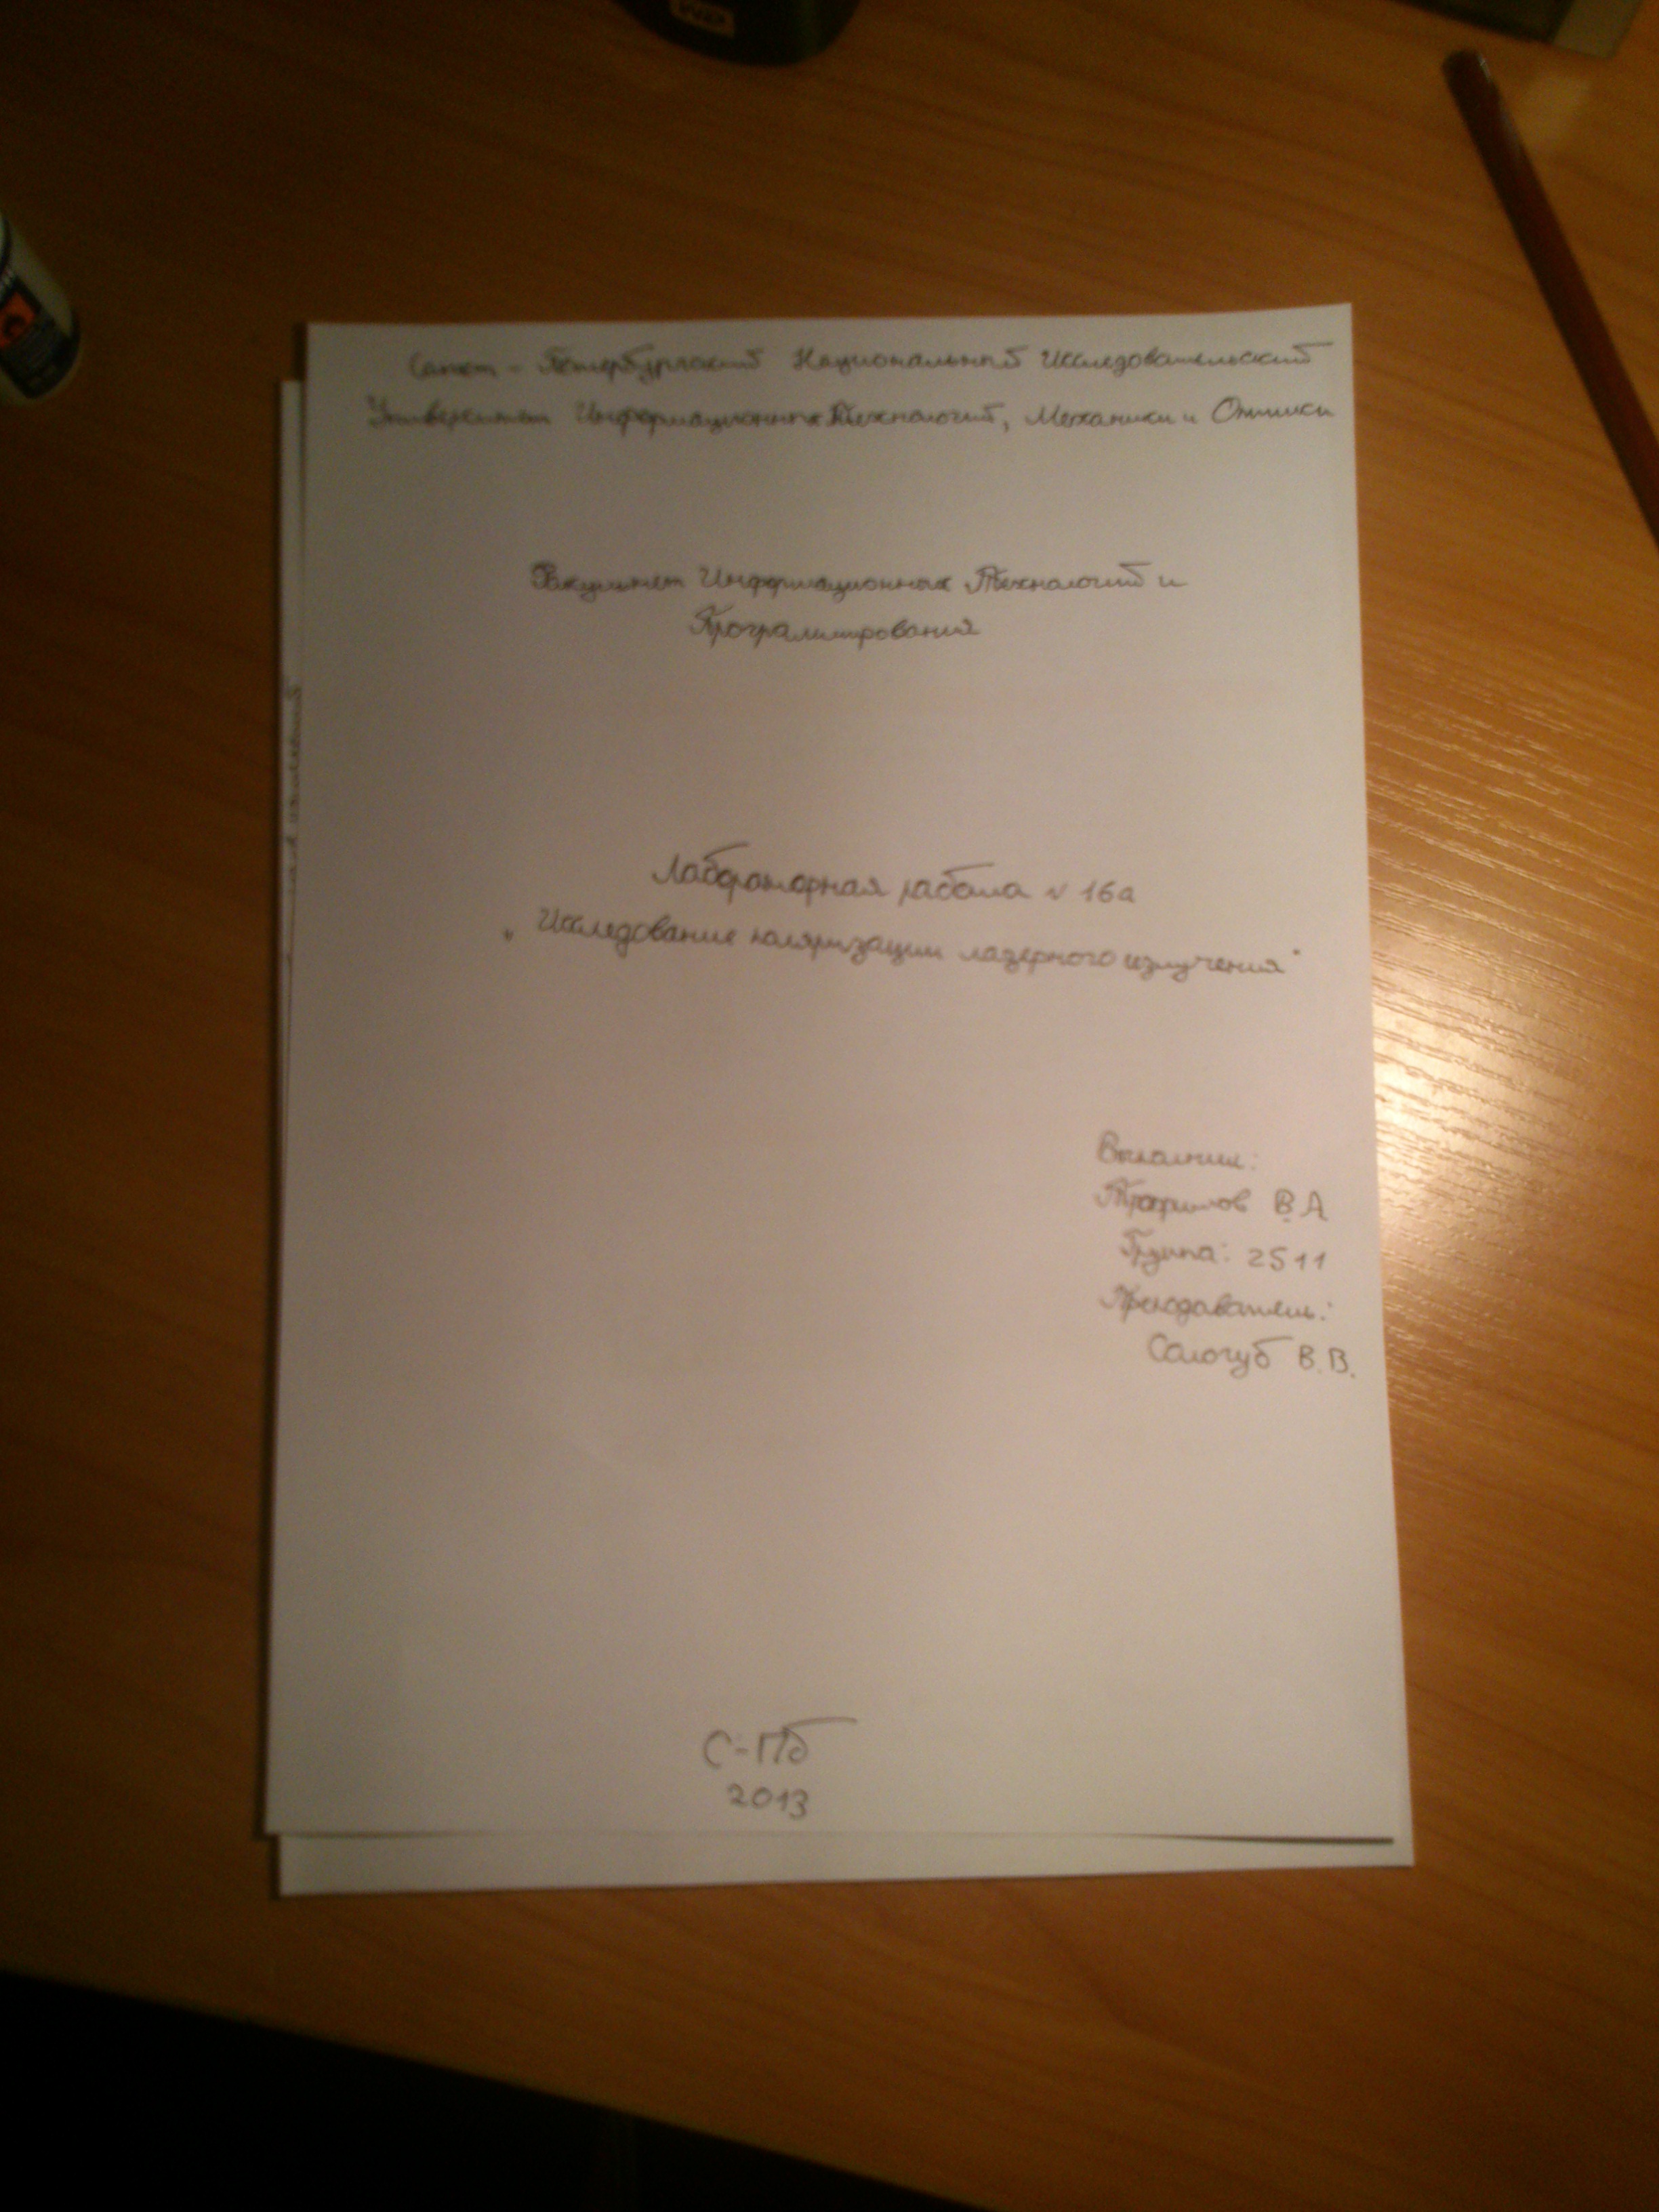 Санкт-Петербургский Национальный Исследовательский
Университет Информационных Технологий, Механики и Оптики
Факультет Информационных Технологий и
Программирования
Лабораторная работа N 16а
„Исследование поляризации лазерного излучения"
Выполнил:
Трофимов В.А
Группа: 2511
Преподаватель:
Сологуб В.В.
С-Пб
2013